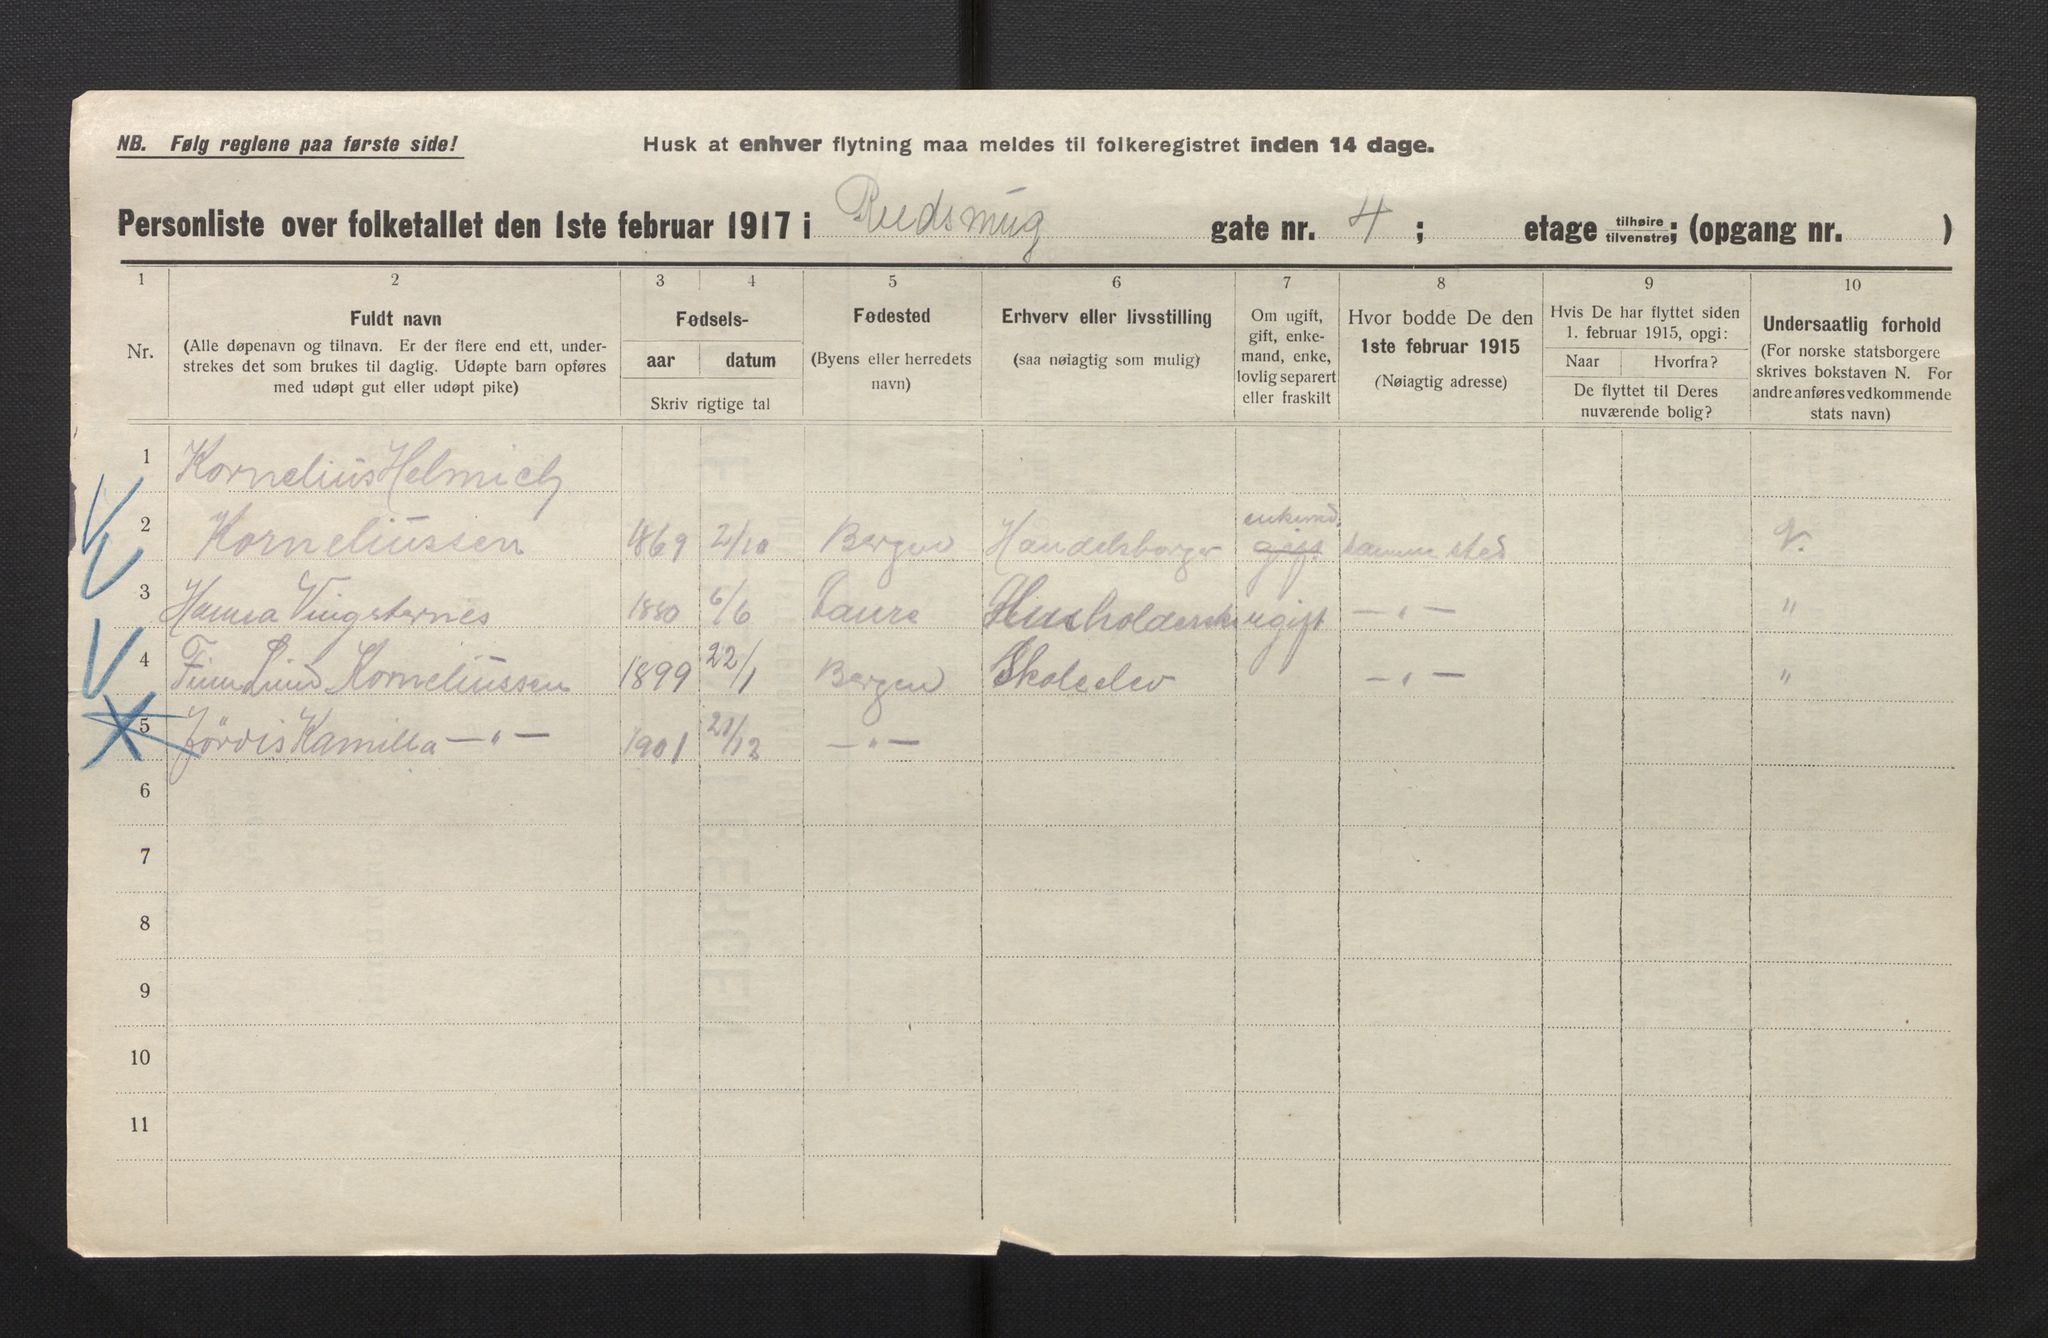 NB. Følg reglene paa første side!
Husk at enhver flytning maa meldes til folkeregistret inden 14 dage.
Personliste over folketallet den 1ste februar 1917 i Rudsmug gate nr. 4 ; etage tilhøire tilvenstre; (opgang nr. )
1 2 3 4 5 6 7 8 9 10
Nr.
Fuldt navn
(Alle døpenavn og tilnavn. Er der flere end ett, under-
strekes det som brukes til daglig. Udøpte barn opføres
med udøpt gut eller udøpt pike)
Fødsels-
aar datum
Skriv rigtige tal
Fødested
(Byens eller herredets
navn)
Erhverv eller livsstilling
(saa nøiagtig som mulig)
Om ugift,
gift, enke-
mand, enke,
lovlig separert
eller fraskilt
Hvor bodde De den
1ste februar 1915
(Nøiagtig adresse)
Hvis De har flyttet siden
1. februar 1915, opgi:
Naar Hvorfra?
De flyttet til Deres
nuværende bolig?
Undersaatlig forhold
(For norske statsborgere
skrives bokstaven N. For
andre anføres vedkommende
stats navn)
1 Kornelius Helmich
enkemd.
2 Korneliussen 1869 2/10 Bergen Handelsborger gift samme sted N.
3 Hansa Vingsternes 1880 6/6 Husholderske ugift — " — "
4 Finn Korneliussen 1899 22/1 Bergen Skoleelev — " — "
5 Hjördis Kamilla — " — 1901 21/12 — " —
6
7
8
9
10
11